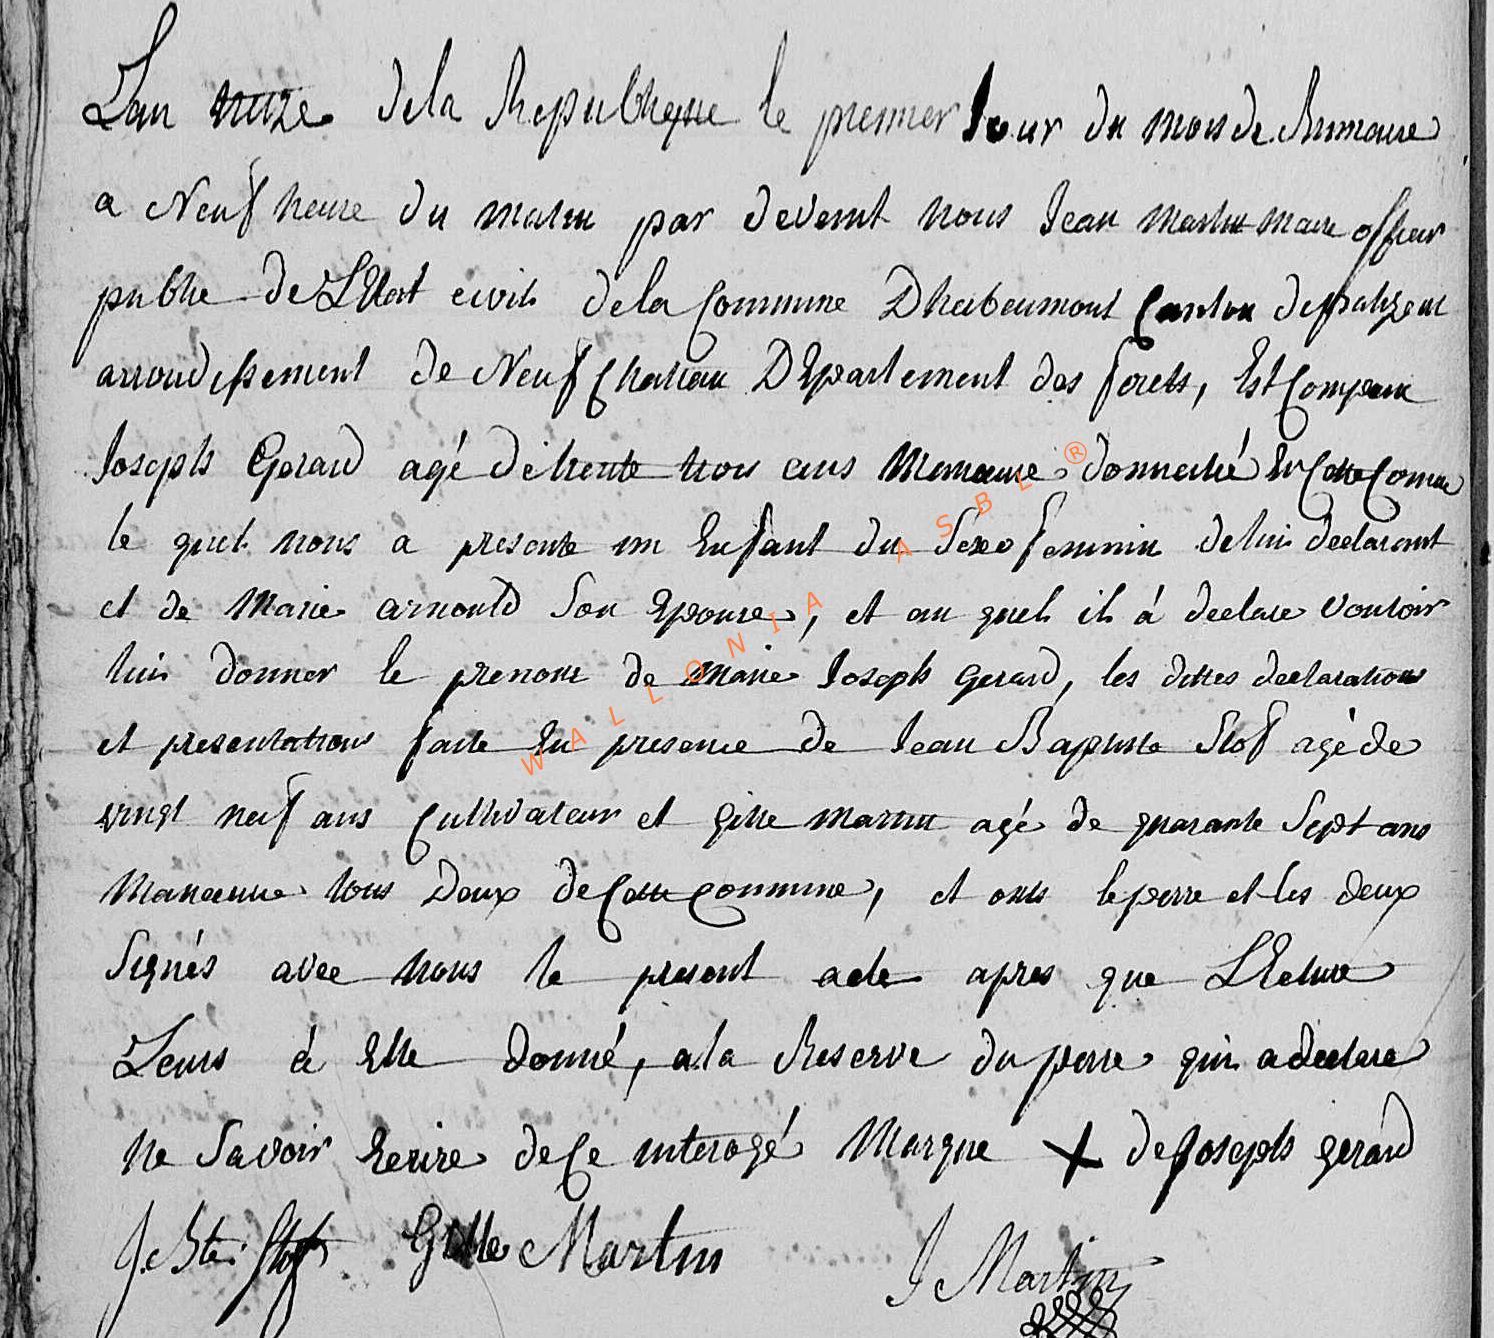 L'an onze de la Republique le premier Jour du mois de Brumaire
a Neuf heure du matin par devemt nous Jean Martin maire officier
publie de L'Etat civil de la Commune D'herbeumont Canton de paliseul
arrondissement de Neufchateau DEpartement des forets, Est Comparu
Joseph Gerard agé de trente trois ans Manoeuvre donnecilié En Cette Comune
le quel nous a presente un Enfant du Sexe feminin de lui declarant
et de Marie arnould Son Epouse, et au quel il à declare vouloir
lui donner le prenom de Marie Joseph Gerard, les dittes declarations
et presentations faite En presence de Jean Baptiste Slof agé de
vingt neuf ans Cultivateur et Gille martin agé de quarante Sept ans
Manoeuvre tous Deux de Cette Commune, et onts le perre et les deux
Signés avec nous le present acte apres que LEcture
Leurs à Ette donné, a la Reserve du perre qui a declare
ne Savoir Ecrire de Ce interogé Marque X de Joseph gerard
J. Bte Slof Gille Martin J Martin
WALLONIA ASBL ®